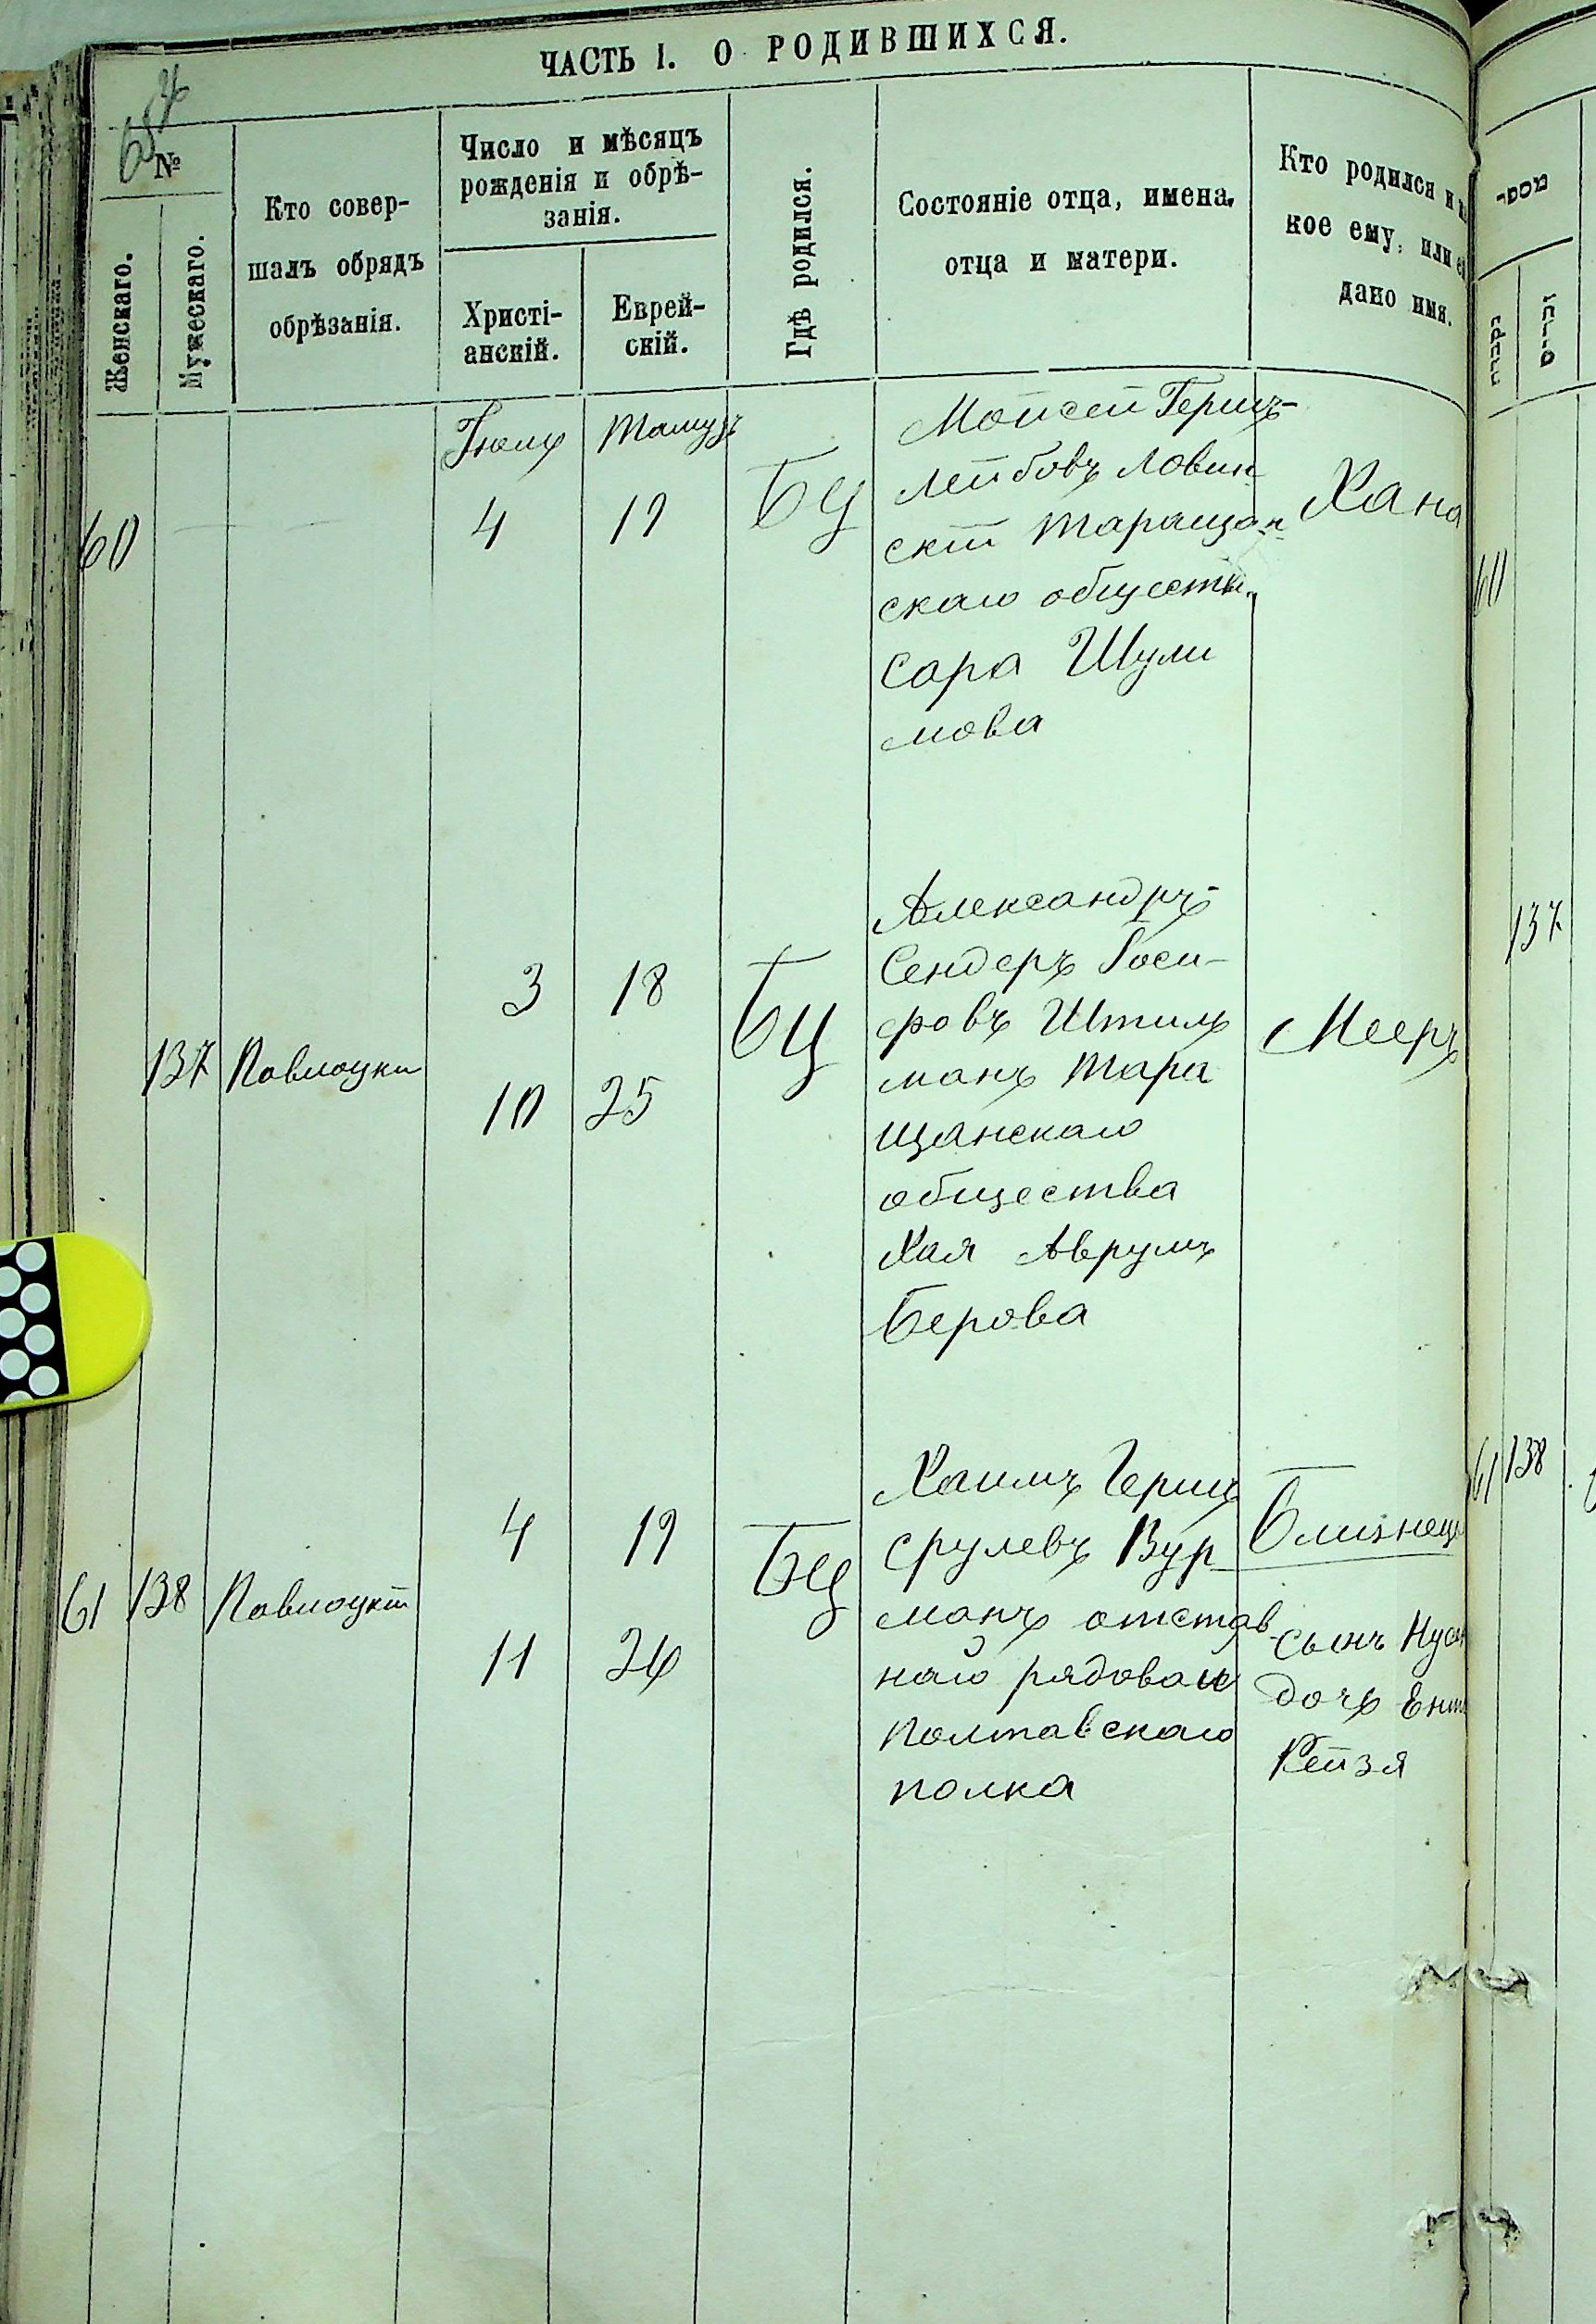 ЧАСТЬ I. О РОДИВШИХСЯ.
№
Женскаго.
Мужескаго.
Кто совер-
шалъ обрядъ
обрѣзанія.
Число и мѣсяцъ
рожденія и обрѣ-
занія.
Христі-
анскій.
Еврей-
скій.
Гдѣ родился.
Состояніе отца, имена
отца и матери.
Кто родился и
кое ему, или
дано имя.
Іюль Тамузъ
60 4 19 БЦ Хана
Мойсей Герцъ-
Лейбовъ Ловин
скій Таращан
скаго обществ.
Сора Шули
мова
137 Повлоцки
3 18 БЦ Мееръ
10 25
Александръ-
Сендеръ Іоси-
фовъ Штиль
манъ Тара
щанскаго
общества
Хая Аврумъ
Берова
61 138 Повлоцкій
4 19 БЦ
11 26
Хаимъ Герш
Срулевъ Вур
манъ отстав
наго рядовой
Полтавскаго
полка
Близнец
сынъ Нусн
дочь Ент
Рейзя
60
137
61 138